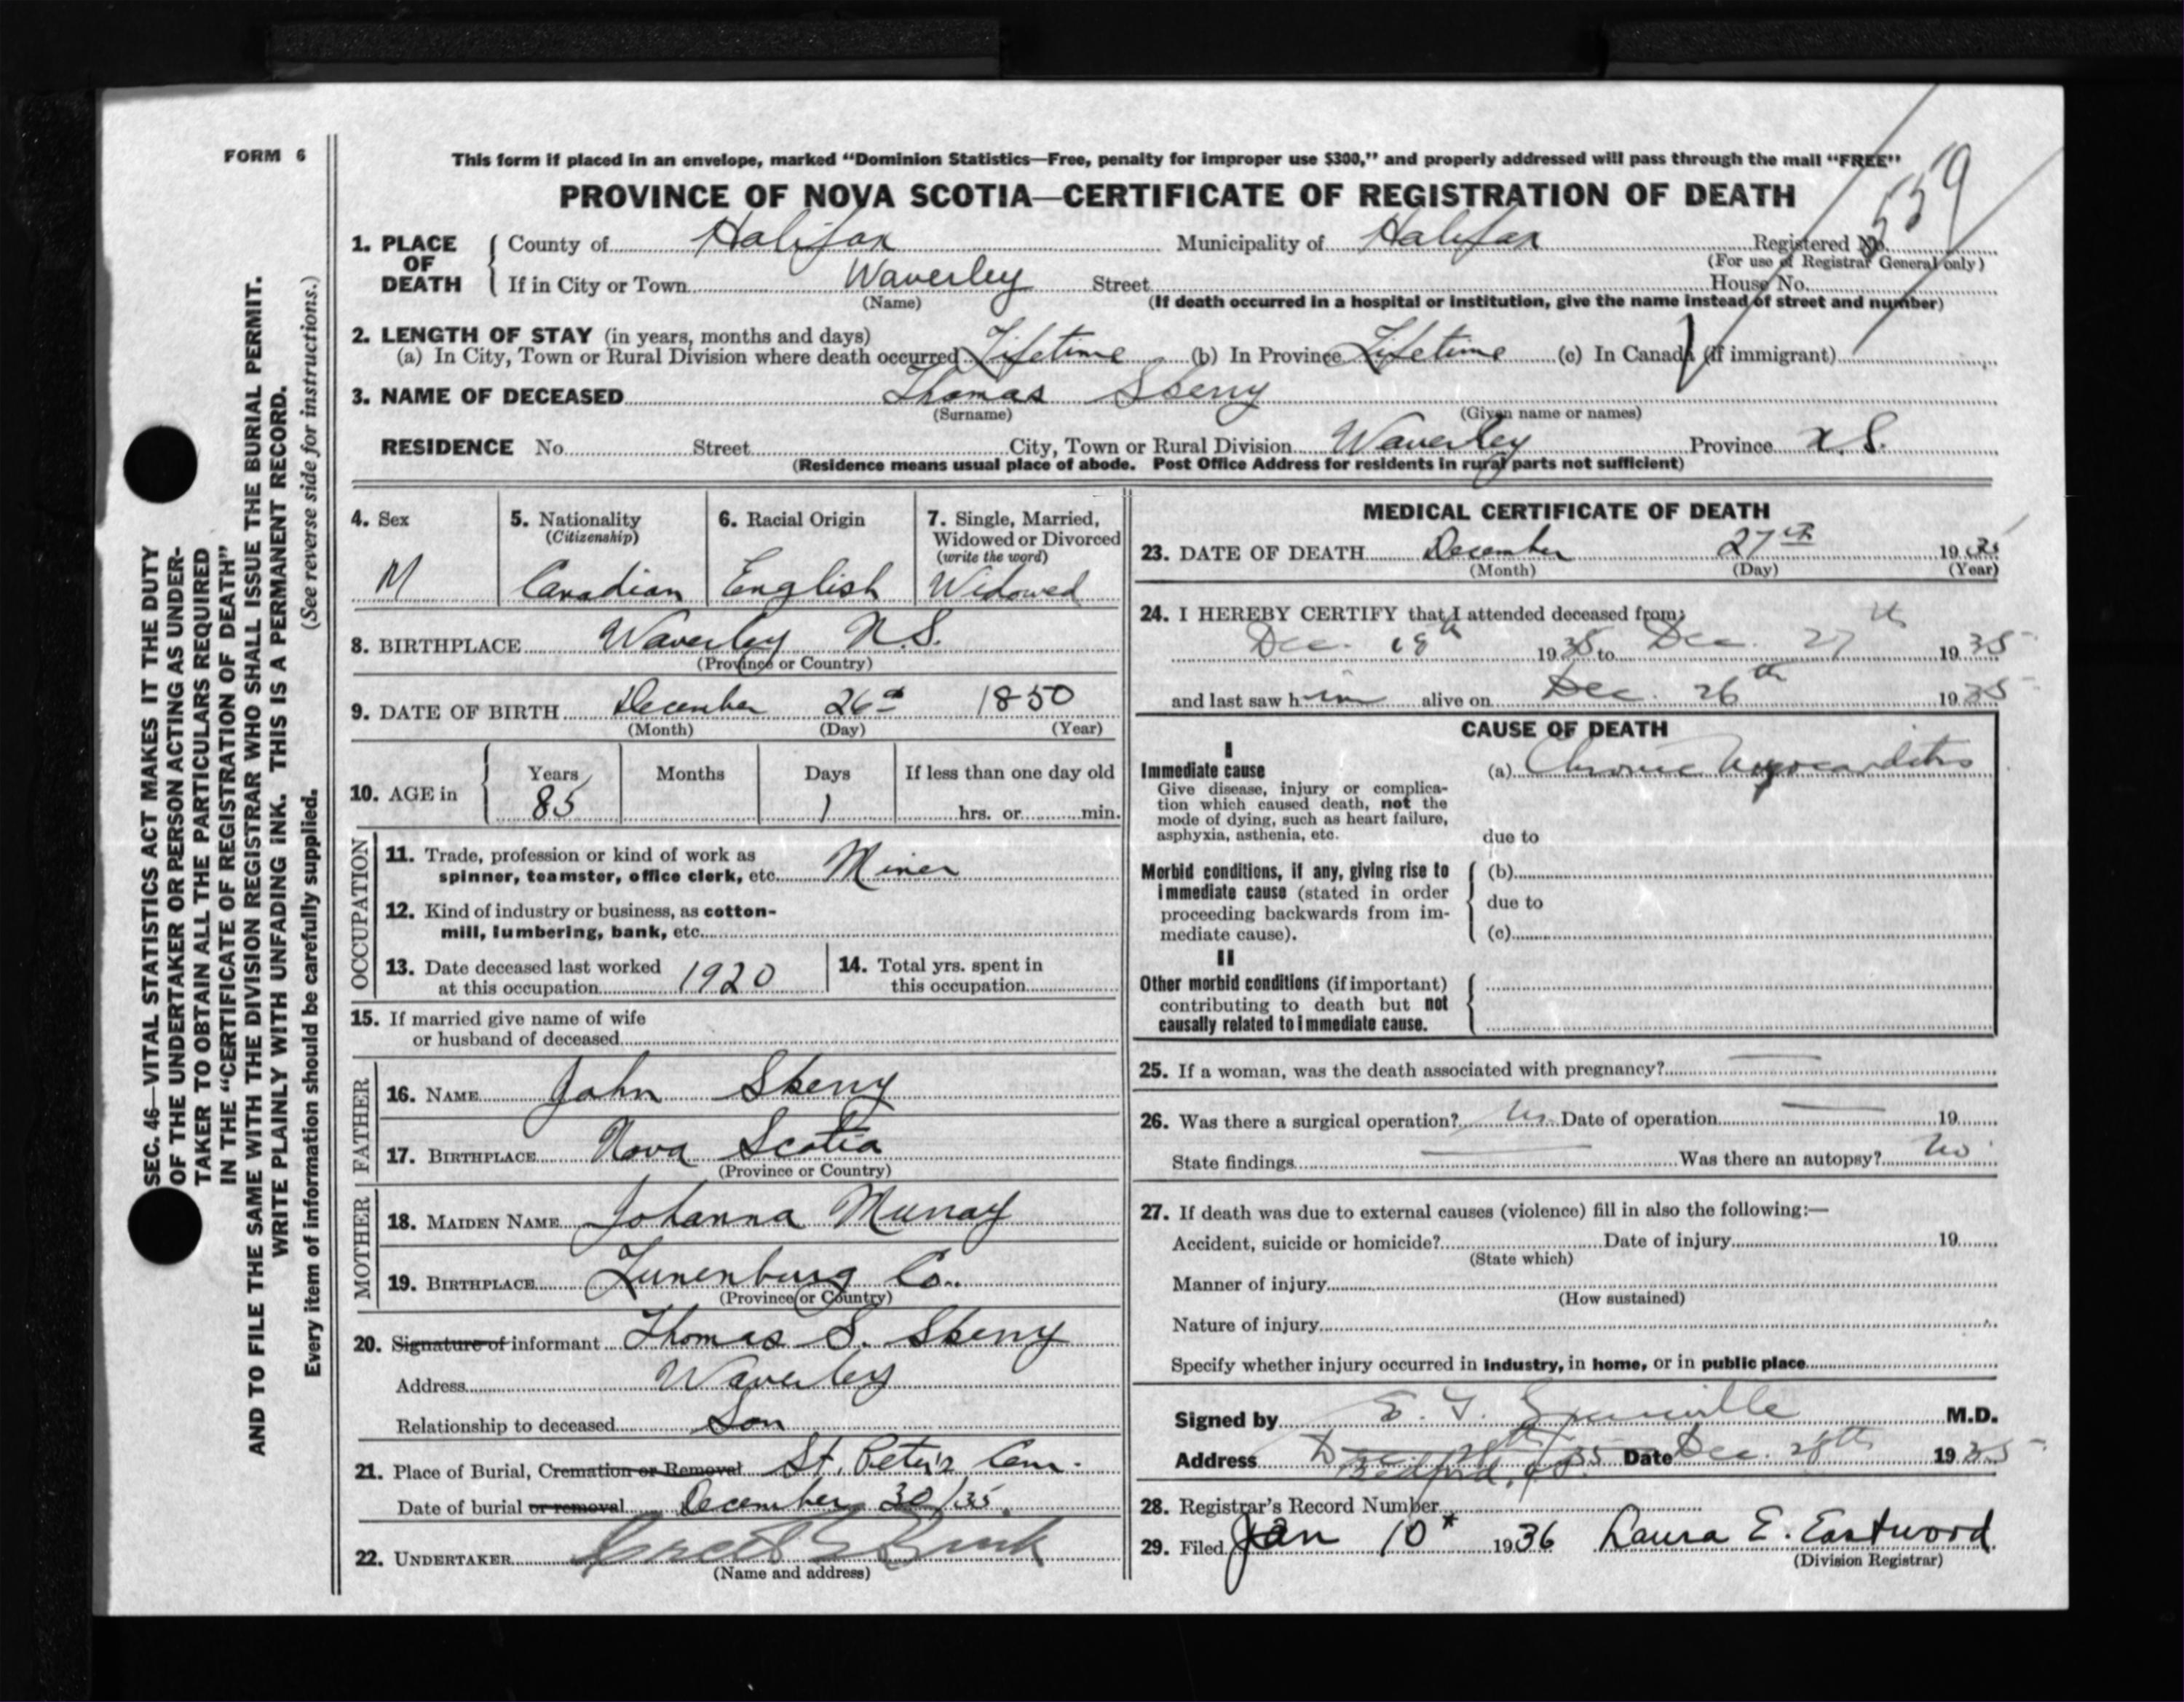 FORM 6
This form if placed in an envelope, marked “Dominion Statistics—Free, penalty for improper use $300,” and properly addressed will pass through the mail “FREE”
PROVINCE OF NOVA SCOTIA—CERTIFICATE OF REGISTRATION OF DEATH
559
1. PLACE OF DEATH { County of Halifax Municipality of Halifax Registered No.
(For use of Registrar General only)
If in City or Town Waverley Street House No.
(Name) (If death occurred in a hospital or institution, give the name instead of street and number)
2. LENGTH OF STAY (in years, months and days)
(a) In City, Town or Rural Division where death occurred Lifetime (b) In Province Lifetime (c) In Canada (if immigrant)
3. NAME OF DECEASED Thomas Skerry
(Surname) (Given name or names)
RESIDENCE No. Street City, Town or Rural Division Waverley Province N.S.
(Residence means usual place of abode. Post Office Address for residents in rural parts not sufficient)
4. Sex M
5. Nationality (Citizenship) Canadian
6. Racial Origin English
7. Single, Married, Widowed or Divorced (write the word) Widowed
8. BIRTHPLACE Waverley N.S.
(Province or Country)
9. DATE OF BIRTH December 26 1850
(Month) (Day) (Year)
10. AGE in { Years 85 Months Days 1 If less than one day old
hrs. or min.
OCCUPATION
11. Trade, profession or kind of work as
spinner, teamster, office clerk, etc. Miner
12. Kind of industry or business, as cotton-
mill, lumbering, bank, etc.
13. Date deceased last worked
at this occupation 1920
14. Total yrs. spent in
this occupation
15. If married give name of wife
or husband of deceased
FATHER
16. NAME John Skerry
17. BIRTHPLACE Nova Scotia
(Province or Country)
MOTHER
18. MAIDEN NAME Johanna Murray
19. BIRTHPLACE Lunenburg Co.
(Province or Country)
20. Signature of informant Thomas S. Skerry
Address Waverley
Relationship to deceased Son
21. Place of Burial, Cremation or Removal St. Peter's Cem.
Date of burial or removal December 30/35.
22. UNDERTAKER
(Name and address)
MEDICAL CERTIFICATE OF DEATH
23. DATE OF DEATH December 27th 1935
(Month) (Day) (Year)
24. I HEREBY CERTIFY that I attended deceased from:
Dec. 18th 1935 to Dec. 27th 1935
and last saw him alive on Dec. 26th 1935
CAUSE OF DEATH
I
Immediate cause (a) Chronic Myocarditis
Give disease, injury or complica-
tion which caused death, not the
mode of dying, such as heart failure,
asphyxia, asthenia, etc.
due to
Morbid conditions, if any, giving rise to { (b)
immediate cause (stated in order
proceeding backwards from im- due to
mediate cause). (c)
II
Other morbid conditions (if important)
contributing to death but not
causally related to immediate cause.
25. If a woman, was the death associated with pregnancy? —
26. Was there a surgical operation? No Date of operation — 19
State findings — Was there an autopsy? No
27. If death was due to external causes (violence) fill in also the following:—
Accident, suicide or homicide? Date of injury 19
(State which)
Manner of injury
(How sustained)
Nature of injury
Specify whether injury occurred in industry, in home, or in public place
Signed by E. M.D.
Address Bedford, N.S. Date Dec. 28th 1935
28. Registrar's Record Number
29. Filed Jan 10 1936 Laura E. Eastwood
(Division Registrar)
SEC. 46—VITAL STATISTICS ACT MAKES IT THE DUTY
OF THE UNDERTAKER OR PERSON ACTING AS UNDER-
TAKER TO OBTAIN ALL THE PARTICULARS REQUIRED
IN THE “CERTIFICATE OF REGISTRATION OF DEATH”
AND TO FILE THE SAME WITH THE DIVISION REGISTRAR WHO SHALL ISSUE THE BURIAL PERMIT.
WRITE PLAINLY WITH UNFADING INK. THIS IS A PERMANENT RECORD.
Every item of information should be carefully supplied. (See reverse side for instructions.)